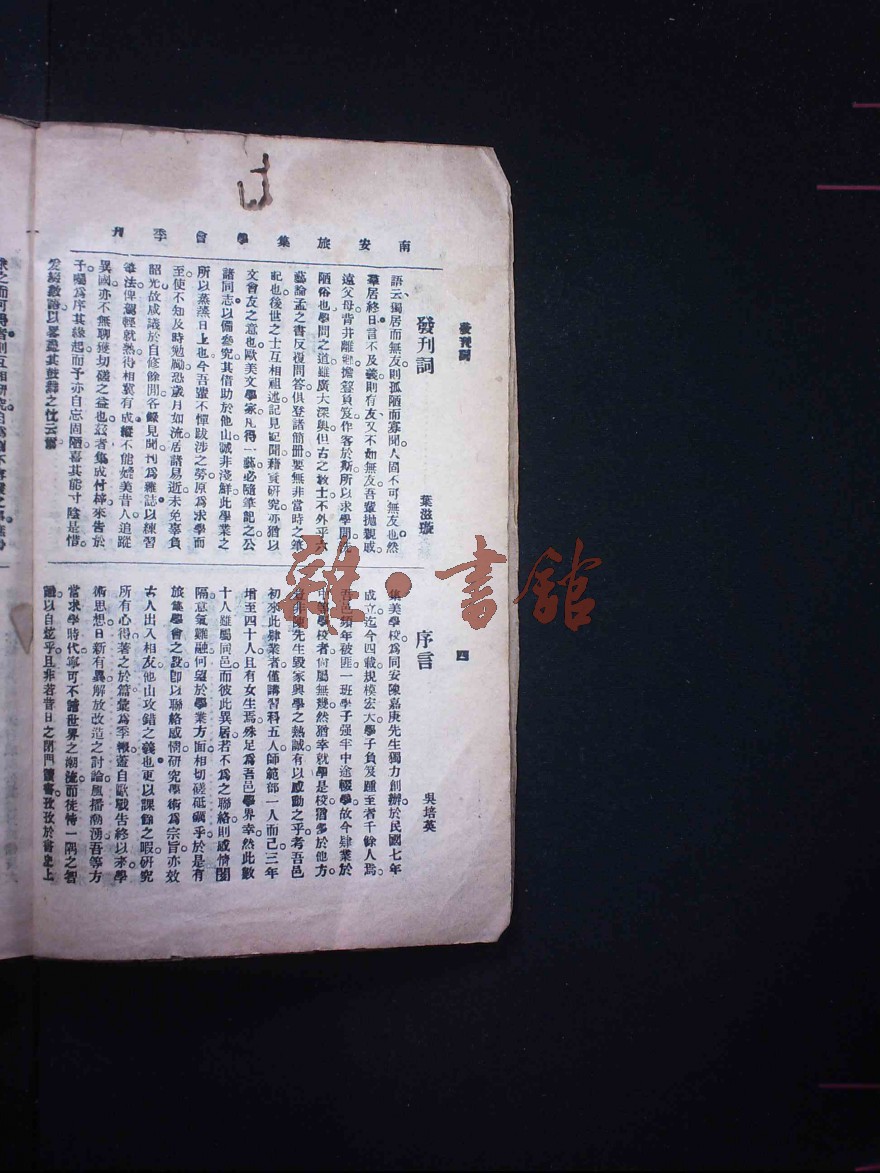 南安旅集學會季刊
發刊詞
四
發刊詞
葉滋璇
語云、獨居而無友、則孤陋而寡聞。人固不可無友也。然
羣居終日、言不及義、則有友、又不如無友。吾輩拋親戚
遠父母、背井離鄉、擔簦負笈、作客於斯、所以求學問、洗
陋俗也。學問之道、雖廣大深與、但古之敎士、不外乎六
藝、論孟之書、反覆問答、俱登諸簡册、要無非當時之筆
記也。後世之士、互相祖述、記見記聞、藉資研究、亦猶以
文會友之意也。歐美文學家、凡得一藝、必隨筆記之、公
諸同志、以備參究、其借助於他山、誠非淺鮮、此學業之
所以蒸蒸日上也。今吾輩不憚跋涉之勞、原為求學而
至、使不知及時勉勵、恐歲月如流、居諸易逝、未免辜負
韶光、故咸議於自修餘閒、各錄見聞、刊為雜誌、以練習
筆法、俾駕輕就熟、得相冀有成、縱不能媲美昔人、追蹤
異國、亦不無聊獲切磋之益也。茲者集成付梓、來告於
予、囑為序其緣起、而予亦自忘固陋、喜其能寸陰是惜、
序言
吳培英
集美學校、為同安陳嘉庚先生獨力創辦。於民國七年
成立、迄今四載、規模宏大、學子負笈踵至者千餘人焉。
吾邑頻年被匪、一班學子、强半中途輟學。故今肄業於
中等學校者、何屬無幾。然猶幸就學是校、猶多於他方。
豈非陳先生毀家興學之熱誠、有以感動之乎。考吾邑
初來此肄業者、僅講習科五人、師範部一人而已。三年
增至四十人、且有女生焉、殊足為吾邑學界幸。然此數
十人、雖屬同邑、而彼此異居、若不為之聯絡、則感情閡
隔、意氣難融、何望於學業方面、相切磋砥礪乎。於是有
旅集學會之設、卽以聯絡感情、研究學術為宗旨、亦效
古人出入相友、他山攻錯之義也。更以課餘之暇、研究
所有心得、著之於篇、彙為季報。蓋自歐戰告終以來、學
術思想日新、有異解放改造之討論、風播潮湧、吾等方
當求學時代、寧可不諳世界之潮流、而徒恃一隅之智
識以自炫乎。且非若昔日之閉門讀書、孜孜於書史上